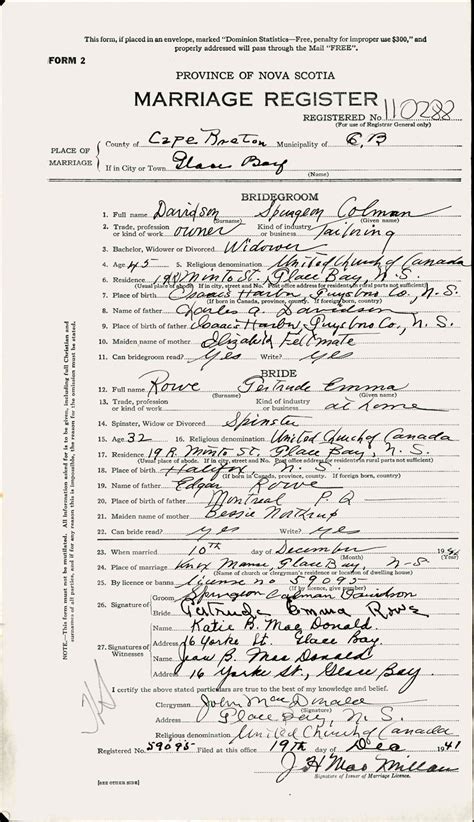 This form, if placed in an envelope, marked "Dominion Statistics—Free, penalty for improper use $300," and
properly addressed will pass through the Mail "FREE".
FORM 2
PROVINCE OF NOVA SCOTIA
MARRIAGE REGISTER
REGISTERED No. 110288
(For use of Registrar General only)
PLACE OF MARRIAGE
County of Cape Breton Municipality of C.B
If in City or Town Glace Bay
(Name)
BRIDEGROOM
1. Full name Davidson Spurgeon Colman
(Surname) (Given name)
2. Trade, profession or kind of work owner Kind of industry or business Tailoring
3. Bachelor, Widower or Divorced Widower
4. Age 45 5. Religious denomination United Church of Canada
6. Residence Minto St., Glace Bay, N.S.
(Usual place of abode. If in city, street and No. Post office address for residents in rural parts not sufficient)
7. Place of birth Isaacs Harbor, Guysboro Co., N.S.
(If born in Canada, province, county. If foreign born, country)
8. Name of father Charles A. Davidson
9. Place of birth of father Isaacs Harbor, Guysboro Co., N.S.
10. Maiden name of mother Elizabeth
11. Can bridegroom read? Yes Write? Yes
BRIDE
12. Full name Rowe Gertrude Emma
(Surname) (Given name)
13. Trade, profession or kind of work Kind of industry or business at home
14. Spinster, Widow or Divorced Spinster
15. Age 32 16. Religious denomination United Church of Canada
17. Residence Minto St., Glace Bay, N.S.
(Usual place of abode. If in city, street and No. Post office address for residents in rural parts not sufficient)
18. Place of birth Halifax N.S.
(If born in Canada, province, county. If foreign born, country)
19. Name of father Edgar Rowe
20. Place of birth of father Montreal P.Q
21. Maiden name of mother Bessie Northrup
22. Can bride read? Yes Write? Yes
23. When married 10th day of December 1941
(Month) (Year)
24. Place of marriage Knox Manse, Glace Bay N-S
(Name of church or clergyman's residence or location of dwelling house)
25. By licence or banns License no 59095
26. Signature of
Groom Spurgeon Colman Davidson
Gertrude Emma Rowe
27. Signatures of Witnesses
Katie B. MacDonald
Address 16 Yorke St. Glace Bay.
Jean B. MacDonald
Address 16 Yorke St., Glace Bay.
I certify the above stated particulars are true to the best of my knowledge and belief.
Clergyman John MacDonald
(Signature)
Address Glace Bay, N.S.
Religious denomination United Church of Canada
Registered No. 59095 Filed at this office 19th day of Dec 1941
J H MacMillan
Signature of Issuer of Marriage Licence.
[SEE OTHER SIDE]
NOTE.—This form must not be mutilated. All information asked for is to be given, including full Christian and
surnames of all parties, and if for any reason this is impossible, the reason for the omission must be stated.